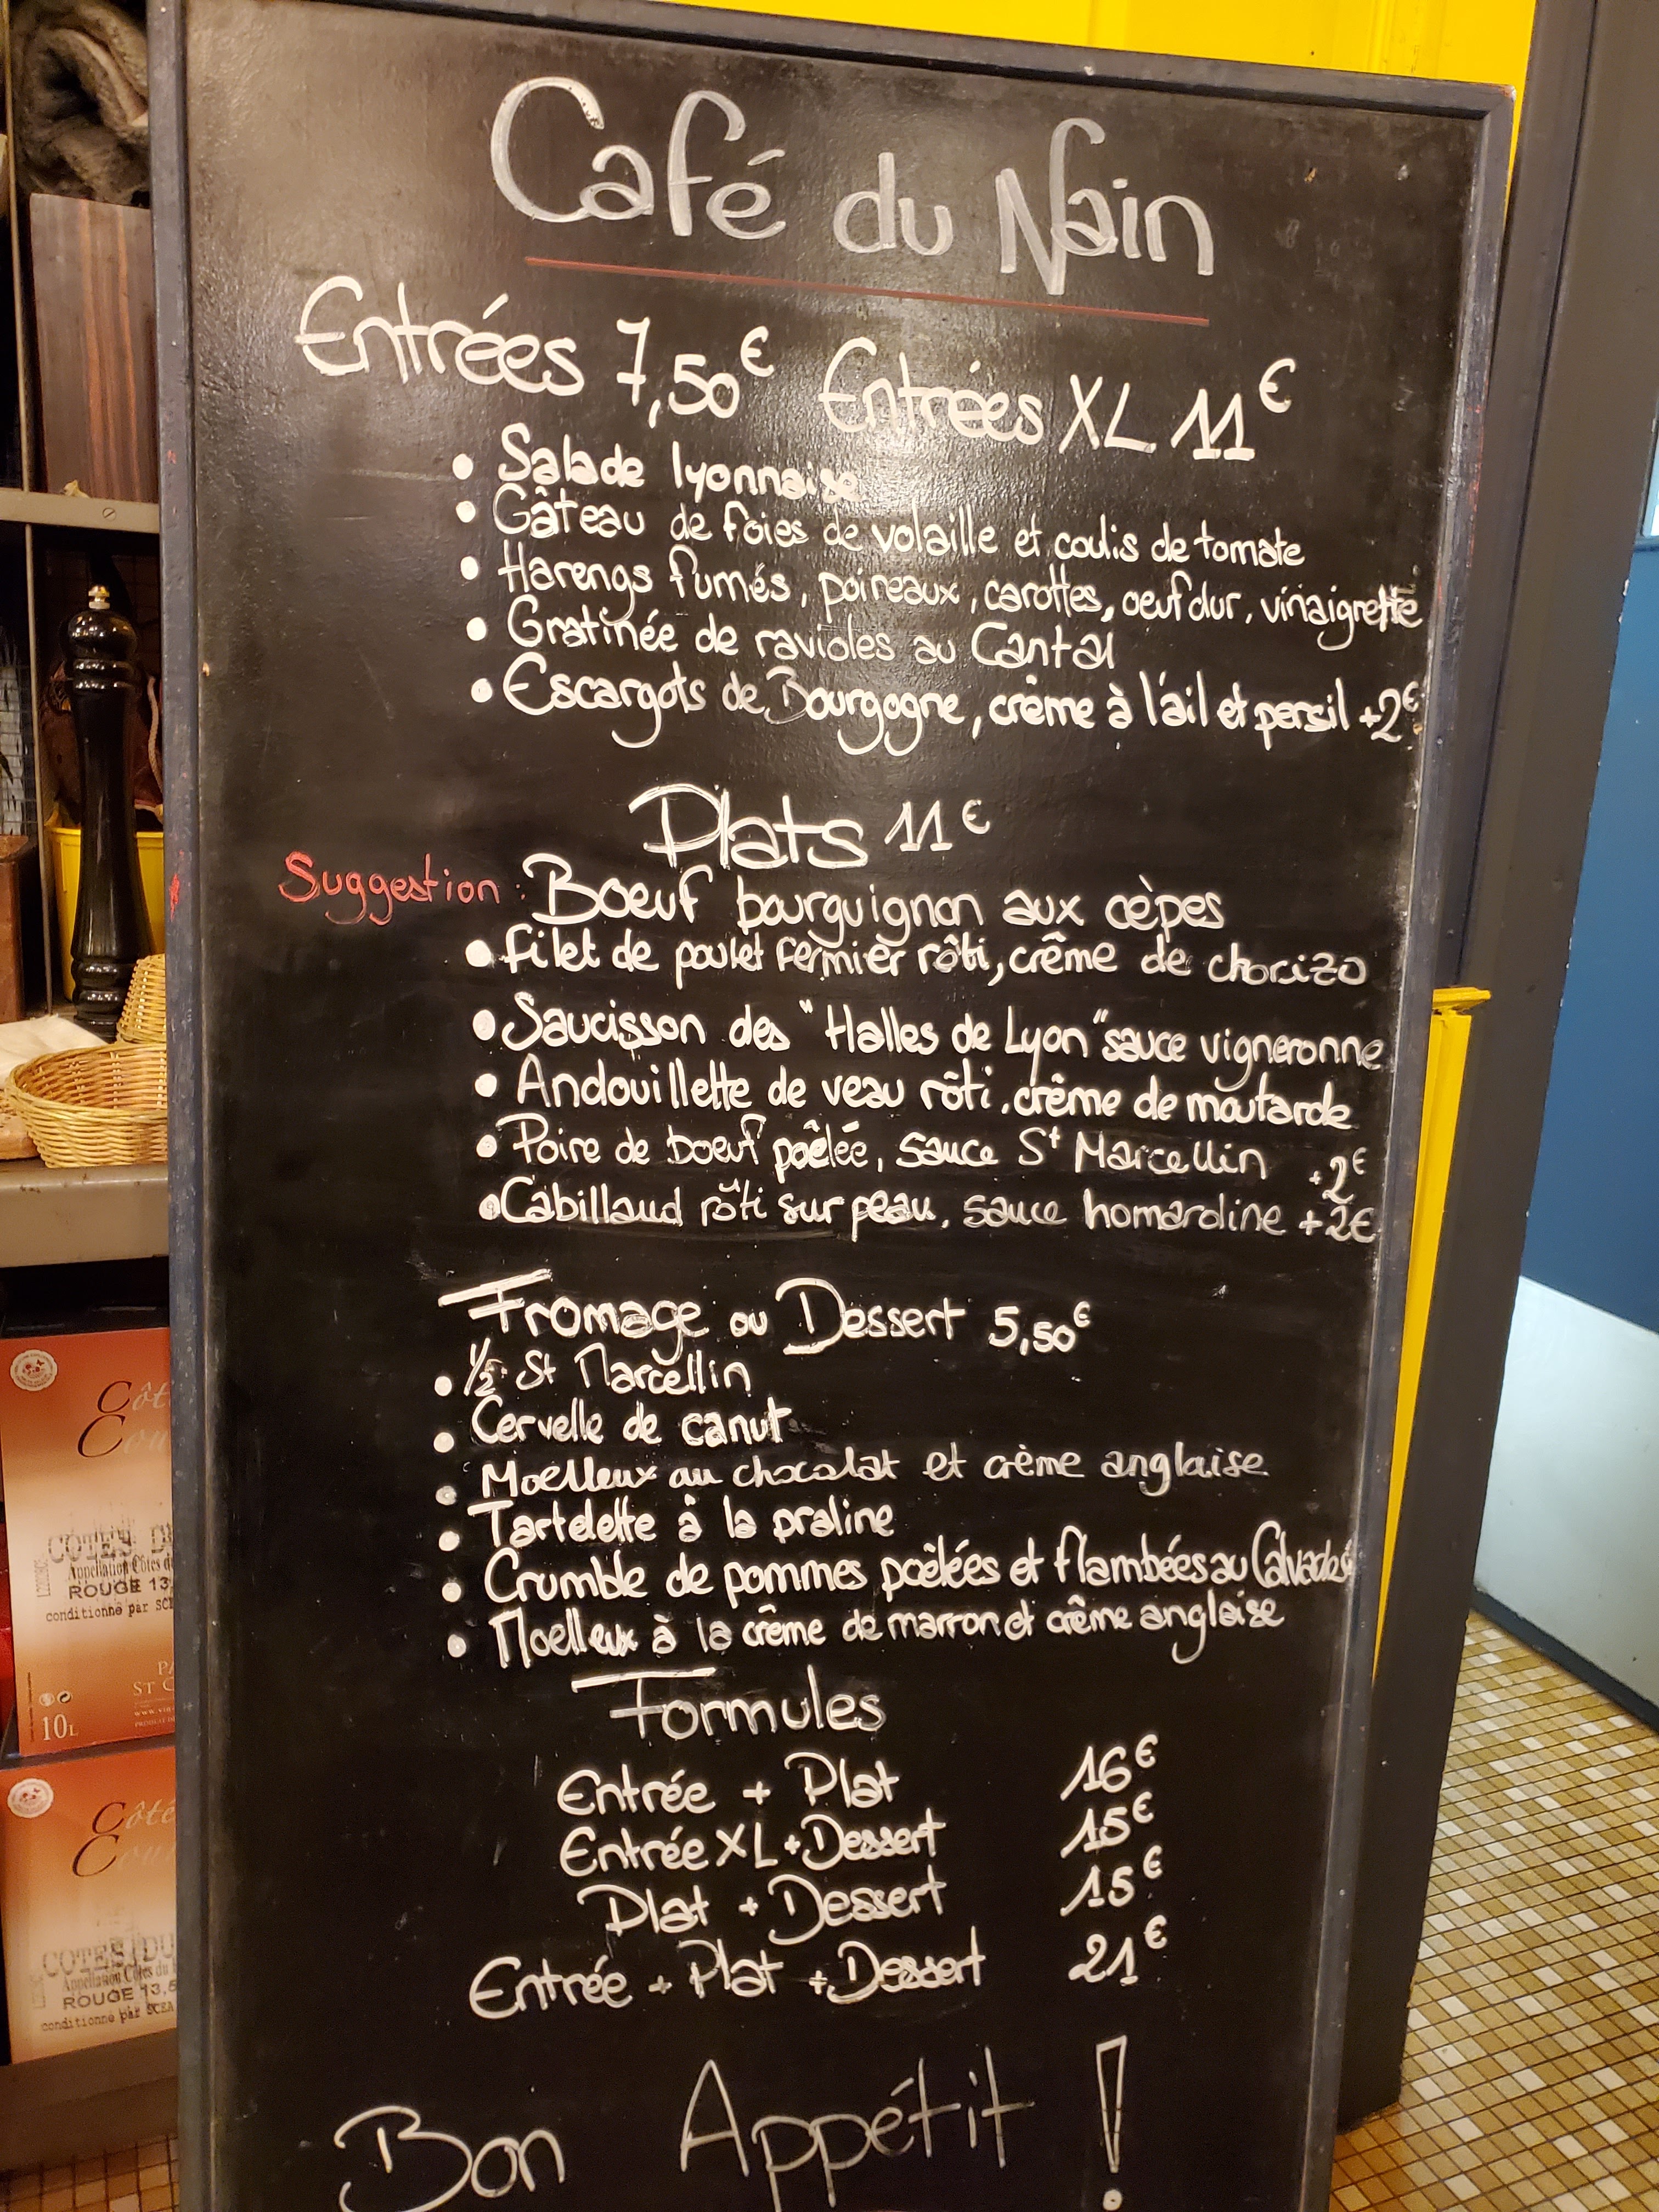 Café du Nain
Entrées 7,50€ Entrées XL 11€
• Salade lyonnaise
• Gâteau de foies de volaille et coulis de tomate
• Harengs fumés, poireaux, carottes, oeuf dur, vinaigrette
• Gratinée de ravioles au Cantal
• Escargots de Bourgogne, crème à l'ail et persil +2€
Plats 11€
Suggestion: Boeuf bourguignon aux cèpes
• filet de poulet fermier rôti, crême de chorizo
• Saucisson des "Halles de Lyon" sauce vigneronne
• Andouillette de veau rôti, crême de moutarde
• Poire de boeuf poêlée, sauce St Marcellin +2€
• Cabillaud rôti sur peau, sauce homardine +2€
Fromage ou Dessert 5,50€
• 1/2 St Marcellin
• Cervelle de canut
• Moelleux au chocolat et crème anglaise
• Tartelette à la praline
• Crumble de pommes poêlées et flambées au Calvados
• Moelleux à la crême de marron et crême anglaise
Formules
Entrée + Plat 16€
Entrée XL + Dessert 15€
Plat + Dessert 15€
Entrée + Plat + Dessert 21€
Bon Appétit !
COTES DU
Appellation Côtes du
ROUGE 13,
conditionné par SCE
ST C
10L
COTES DU
Appellation Côtes du
ROUGE 13,5
conditionné par SCEA